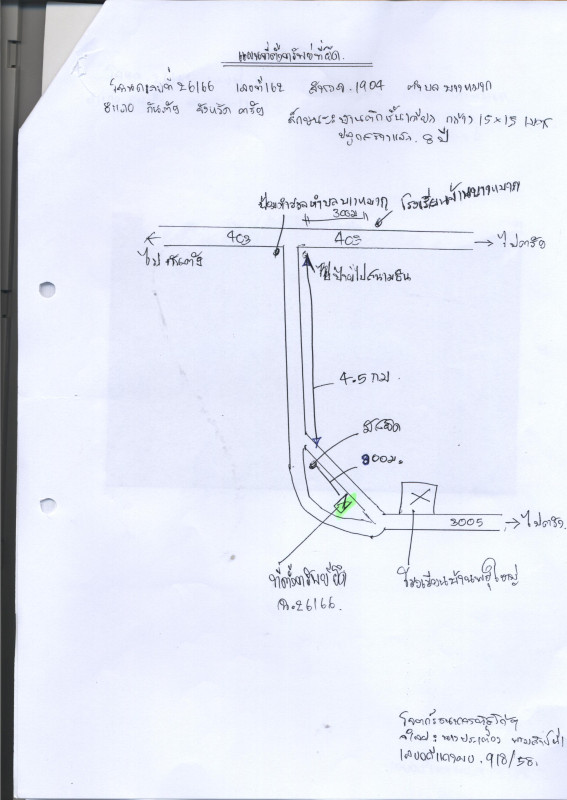 แผนที่ตั้งทรัพย์ที่ยึด.
โฉนดเลขที่ 26166 เลขที่ 162 สำรวจ. 1904 ตำบล บางหมาก
อำเภอ กันตัง จังหวัด ตรัง ลักษณะ: บ้านตึกชั้นเดียว กว้าง 15 x 15 เมตร
ปลูกสร้างแล้ว. 8 ปี
ป้อมตำรวจตำบลบางหมาก
300 ม
โรงเรียนบ้านบางหมาก
403
403
ไปกันตัง
ไปตรัง
ป้ายไปสนามบิน
4.5 กม.
900 ม.
3005
ไปตรัง.
ที่ตั้งทรัพย์ที่ยึด
ฉ.26166.
โจทก์ธนาคาร
จำเลย:
เลขคดีแดง ผบ. 918/58.